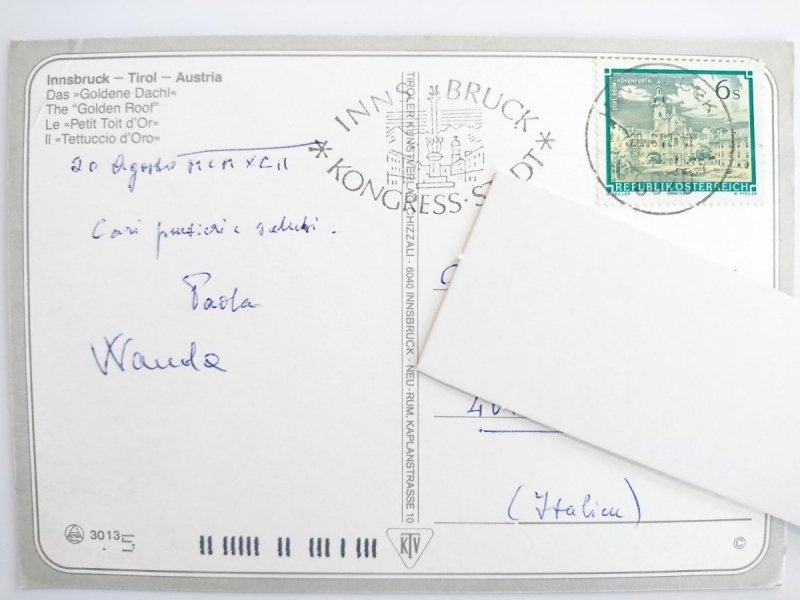 Innsbruck – Tirol – Austria
Das »Goldene Dachl«
The "Golden Roof"
Le «Petit Toit d'Or»
Il «Tettuccio d'Oro»
20 Agosto MCMXCII
Cari pensieri e saluti.
Paola
Wanda
INNSBRUCK
KONGRESS-STADT
6 S
REPUBLIK ÖSTERREICH
TIROLER KUNSTVERLAG CHIZZALI - 6040 INNSBRUCK - NEU-RUM, KAPLANSTRASSE 10
40
(Italien)
3013
5
KTV
©